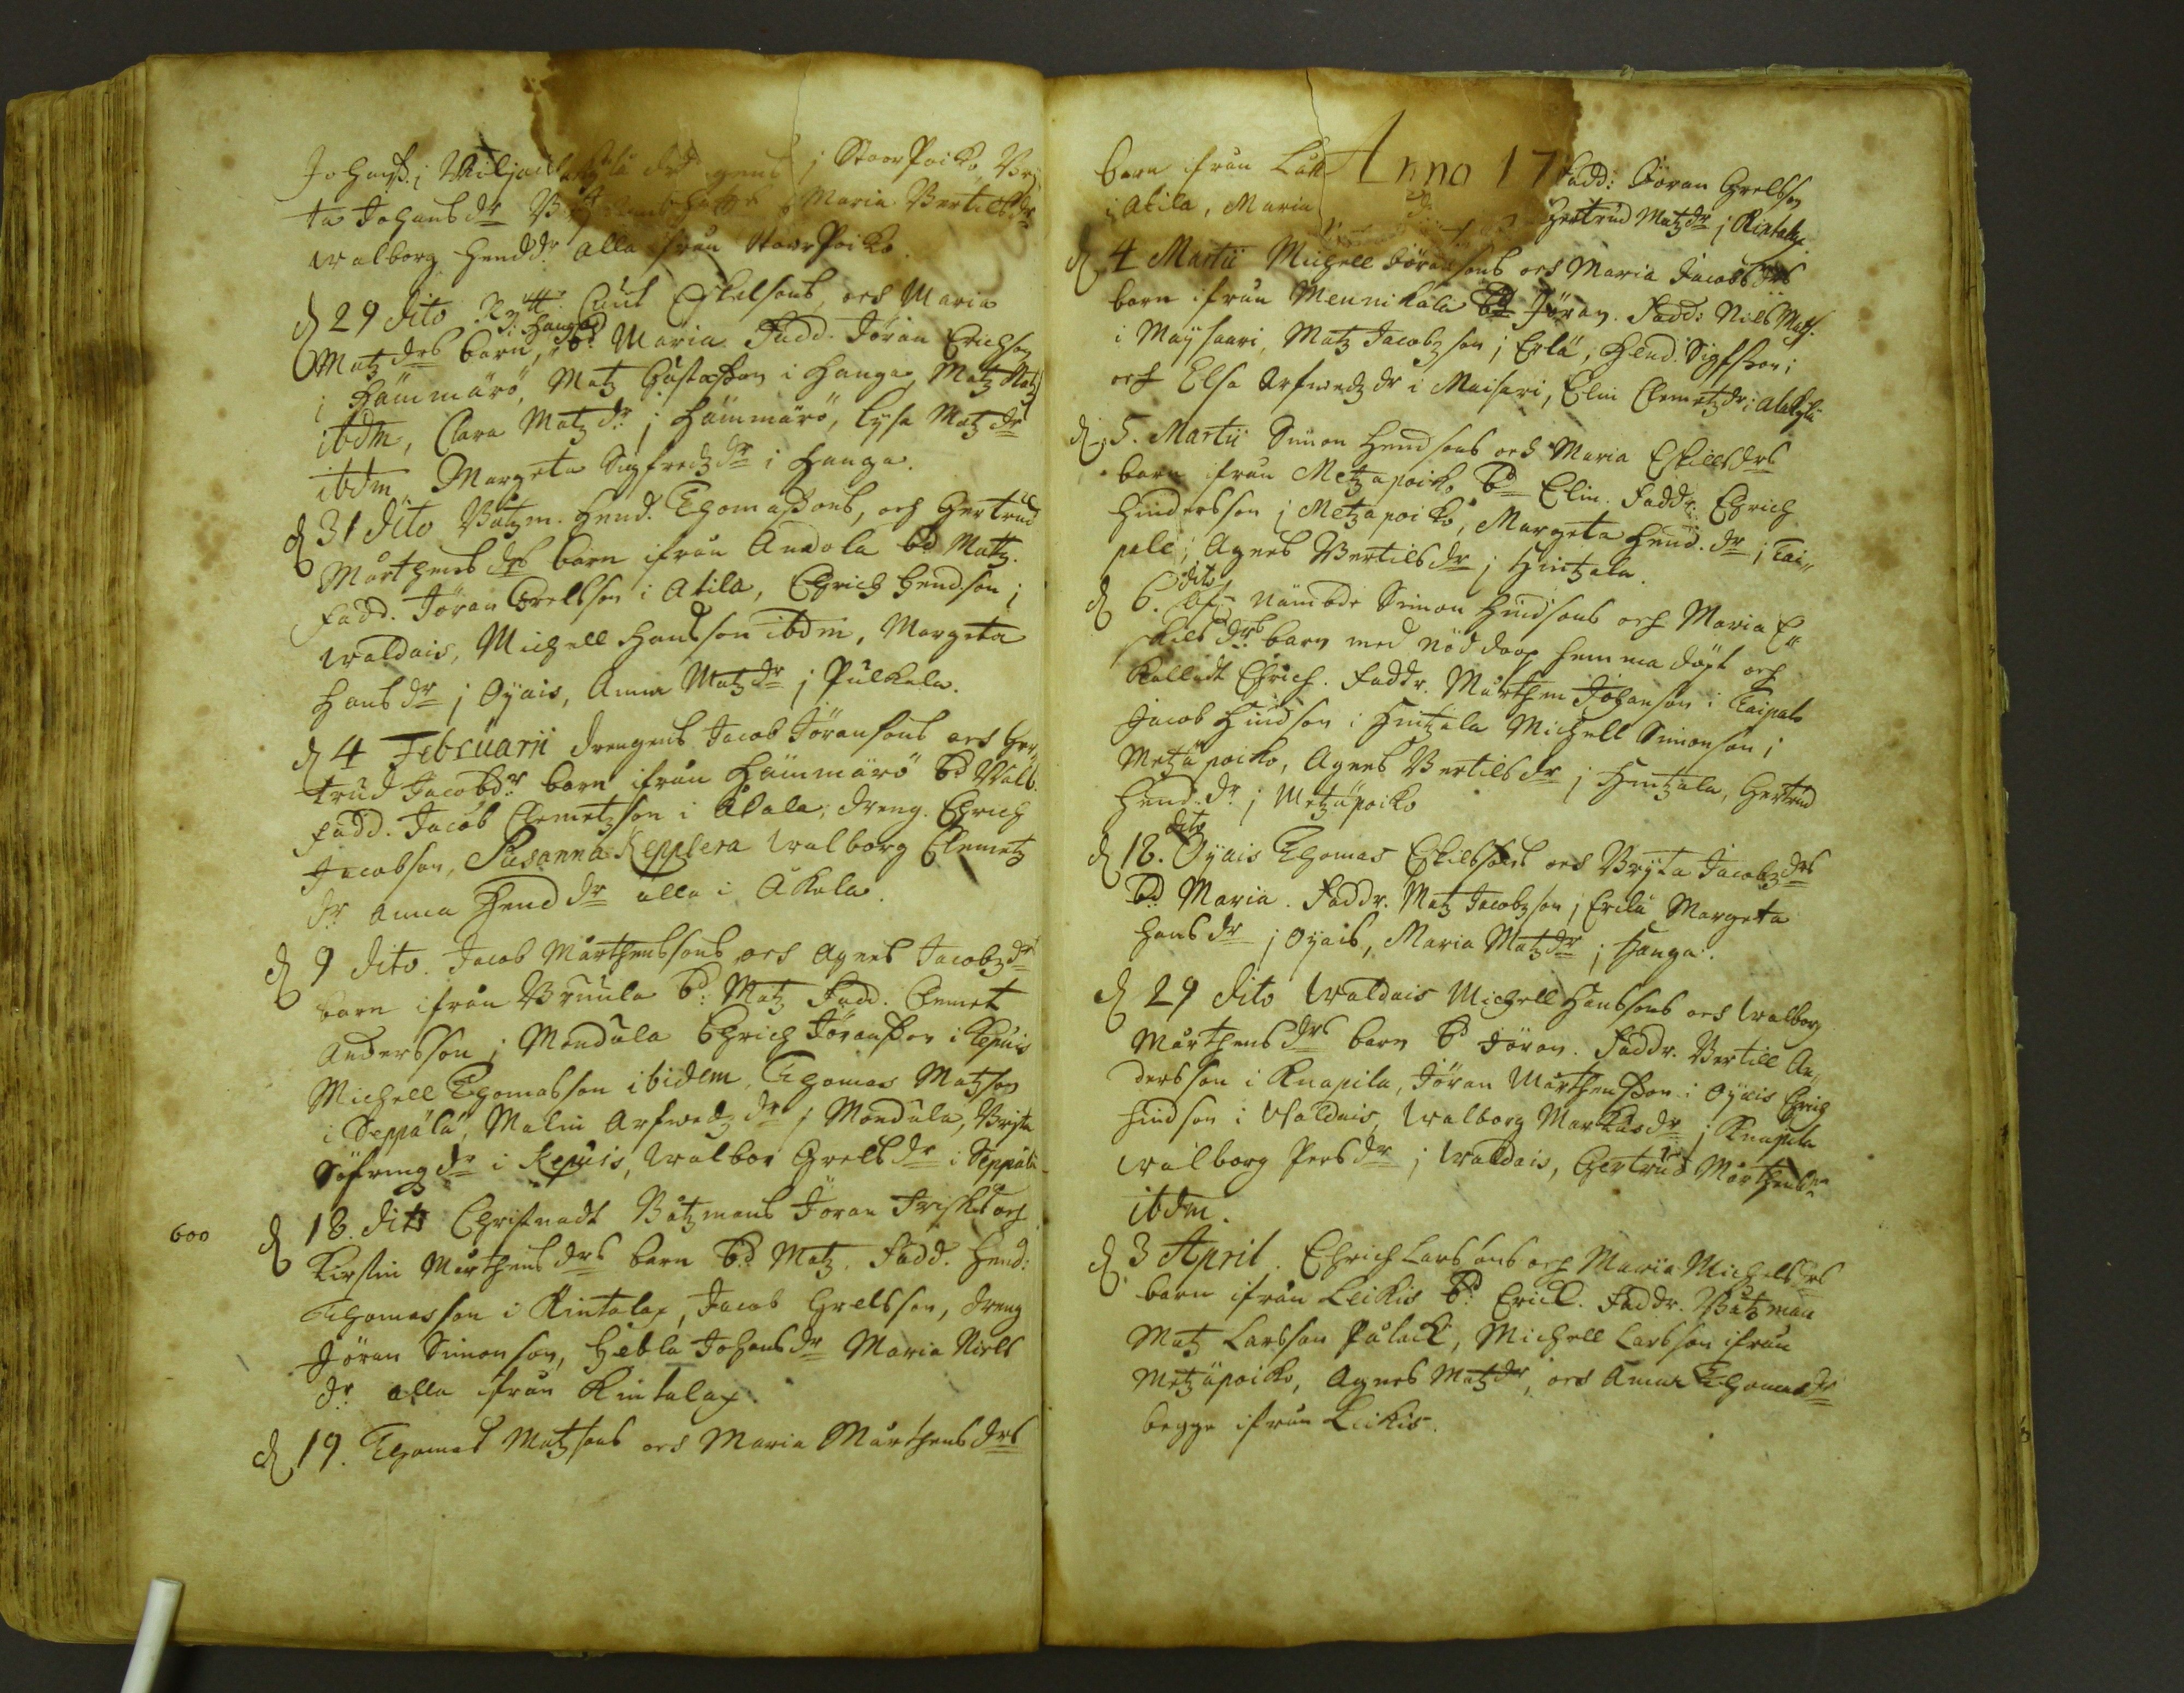 Johanß. i j StoorPoiko, Bri
ta Johansdr Maria Bertilsdr
Walborg Hendd:r alla från StoorPoiko.
d 29 dito Rytt: Eskelsons och Maria
Matzdrs barn, i Hanga bd Maria Fadd. Jöran Erichson
i Hämmärö, Matz Gustafson i Hanga, Matz Matz
ibdm, Clara Matzdr j Hämmärö, Lysa Matzdr
ibdm, Margeta Sigfredzdr i Hanga.
d 31 dito Båtzm. Hend. Thomasons, och Gertrud
Mårthensdrs barn ifrån Andola bd Matz.
Fadd. Jöran Grelsson i Atila, Ehrich Hendson j
Waldais, Michell Hansson ibdm, Margeta
Hansdr j Oyais, Anna Matzdr j Pulkala.
d 4 Februarii drengens Jacob Jöransons och Ger
trud Jacobdr barn ifrån Hämmärö bd Walb.
Fadd. Jacob Clemetzson i Åkala, dreng. Ehrich
Jacobson, Susanna Kepplera Walborg Clemetz
dr Anna Henddr alla i Åkala.
d 9 dito. Jacob Mårthenssons och Agnes Jacobzdr
barn ifrån Bruula b: Matz Fadd. Clemet
Andersson j Mondula Ehrich Jöransson i Repuis
Michell Thomasson ibidem, Thomas Matzson
i Seppälä, Malin Arfwedzdr j Mondula, Brita
Söfringdr i Repuis, Walbor Grelsdr i Seppälä
600 d 18. dito Christnadt Båtzmans Jöran Friskes och
Kirstin Mårthensdrs barn bd Matz. Fadd. Hend:
Thomasson i Rintalax, Jacob Grelsson, dreng
Jöran Simonson, Hebla Johansdr Maria Niels
dr alla ifrån Rintalax.
d 19. Thomas Matzsons och Maria Mårthensdrs
Anno 17
barn ifrån Fadd: Jöran Grelsson
i Atila, Maria Gertrud Matzdr j Rintalax.
d 4 Martii Michell Jöransons och Maria Jacobsdrs
barn ifrån Mennikälä bd Jöran. Fadd: Nils Matz.
i Maysaari, Matz Jacobzson j Erlä, Hend. Sigfsson i
och Elsa Arfwedzdr i Maisari, Elin Clemetzdr i Alakylä
d 5. Martii Simon Hendsons och Maria Eskillsdrs
barn ifrån Metzäpoiko bd Elin. Faddr. Ehrich
Hindersson j Metzäpoiko, Margeta Hend.dr j Tai„
pale, Agnes Bertilsdr j Hintzala.
d 6. dito Nämbde Simon Hindsons och Maria E„
skilsdrs barn med nöddoop hemma döpt och
kalladt Ehrich. Faddr. Mårthen Johanson i Taipale
Jacob Hindson i Hintzala Michell Simonson j
Metzäpoiko, Agnes Bertilsdr j Hintzala, Gertrud
Hend.dr j Metzäpoiko
d 18. dito Oyais Thomas Eskilssons och Bryta Jacobzdrs
bd Maria. Faddr. Matz Jacobzson j Ercilä Margeta
Hansdr j Oyais, Maria Matzdr j Hanga.
d 29 dito Waldais Michell Hanssons och Walborg
Mårthensdrs barn b Jöran. Faddr. Bertill An„
dersson i Knapila, Jöran Mårthensson i Oyais Ehrich
Hindson i Waldais, Walborg Markusdr j Knapila
Walborg Persdr j Waldais, Gertrud Mårthensdr
ibdm.
d 3 April. Ehrich Larssons och Maria Michelsdrs
barn ifrån Leikis b: Erick. Faddr. Båtzman
Matz Larsson Pålack, Michell Larsson ifrån
Metzäpoiko, Agnes Matzdr, och Anna Thomasdr
begge ifrån Leikis.